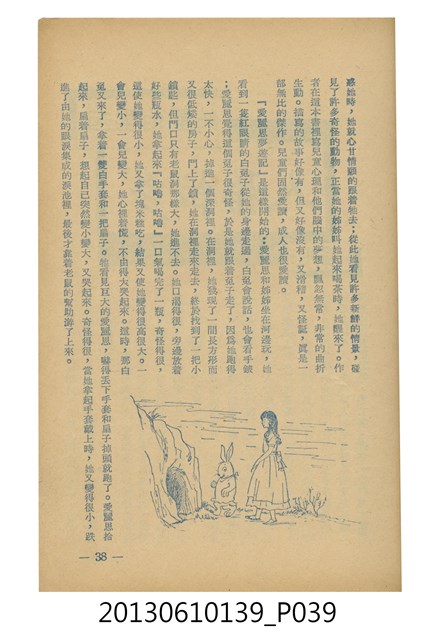 惑她時，她就心甘情願的跟着牠去；從此她看見許多新鮮的情景，碰
見了許多奇怪的動物，正當她的姊姊叫她起來喝茶時，她醒來了。作
者在這本書裡寫兒童心理和他們腦中的夢想，飄忽無常，非常的曲折
生動。描寫的故事好像有，但又好像沒有，又滑稽，又怪誕，眞是一
部無比的傑作。兒童們固然愛讀，成人也很愛讀。
『愛麗思夢遊記』是這樣開始的：愛麗思和姊姊坐在河邊玩，她
看到一隻紅眼睛的白兎子從她的身邊走過，白兎會說話，也會看手錶
；愛麗思覺得這個兎子很奇怪，於是她就跟着兎子走了，因爲她跑得
太快，一不小心，掉進一個深洞裡。在洞裡，她發現了一間長方形而
又很低矮的房子，門上了鎖，她在洞裡走來走去，終於找到了一把小
鑰匙，但門口只有老鼠洞那樣大，她進不去。她口渴得很，旁邊放着
好些瓶水，她拿起來『咕嚕，咕嚕』一口氣喝完了一瓶，奇怪得很，
這使她變得很小，她又拿了塊米糕吃，結果又使她變得很高很大。一
會兒變小，一會兒變大，她心裡着慌，不由得大哭起來。這時，那白
兎又來了，拿着一雙白手套和一把扇子。她看見巨大的愛麗思，嚇得丟下手套和扇子掉頭就跑了。愛麗思拾
起來，扇着扇子，想起自己突然變小變大，又哭起來。奇怪得很，當她拿起手套戴上時，她又變得很小，跌
進了由她的眼淚集成的淚池裡，最後才靠着老鼠的幫助游了上來。
— 38 —
20130610139_P039